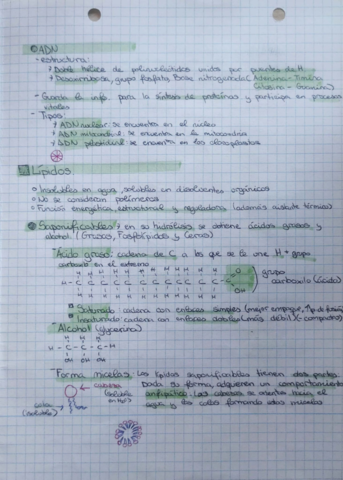 ADN
- estructura:
Doble hélice de polinucleótidos unidos por puentes de H
Desoxirribosa, grupo fosfato, Base nitrogenada (Adenina-Timina
Citosina - Guanina)
- Guarda la info. para la síntesis de proteínas y participa en procesos
vitales
- Tipos:
ADN nuclear: se encuentra en el núcleo
ADN mitocondrial: se encuentra en la mitocondria
ADN plastidial: se encuentra en los cloroplastos
Lípidos
Insolubles en agua, solubles en disolventes orgánicos
No se consideran polímeros
Función energética, estructural y reguladora (además aislante térmico)
Saponificables: en su hidrólisis se obtiene ácidos grasos y
alcohol. (Grasas, Fosfolípidos y Ceras)
- Ácido graso: cadena de C a los que se le une H + grupo
carboxilo en el extremo
H H H H H H H H H H
C C C C C C C C C C C O
OH
grupo
carboxilo (ácido)
H H H H H H H H H H
Saturado: cadena con enlaces simples
Insaturado: cadena con enlaces dobles
- Alcohol (glicerina)
H H H
H - C - C - C - H
OH OH OH
- Forma micelas: Los lípidos saponificables tienen dos partes
cabeza
(soluble
en H2O)
Dada su forma, adquieren un comportamiento
anfipático. Las cabezas se orientan hacia el
agua y las colas formando estas micelas